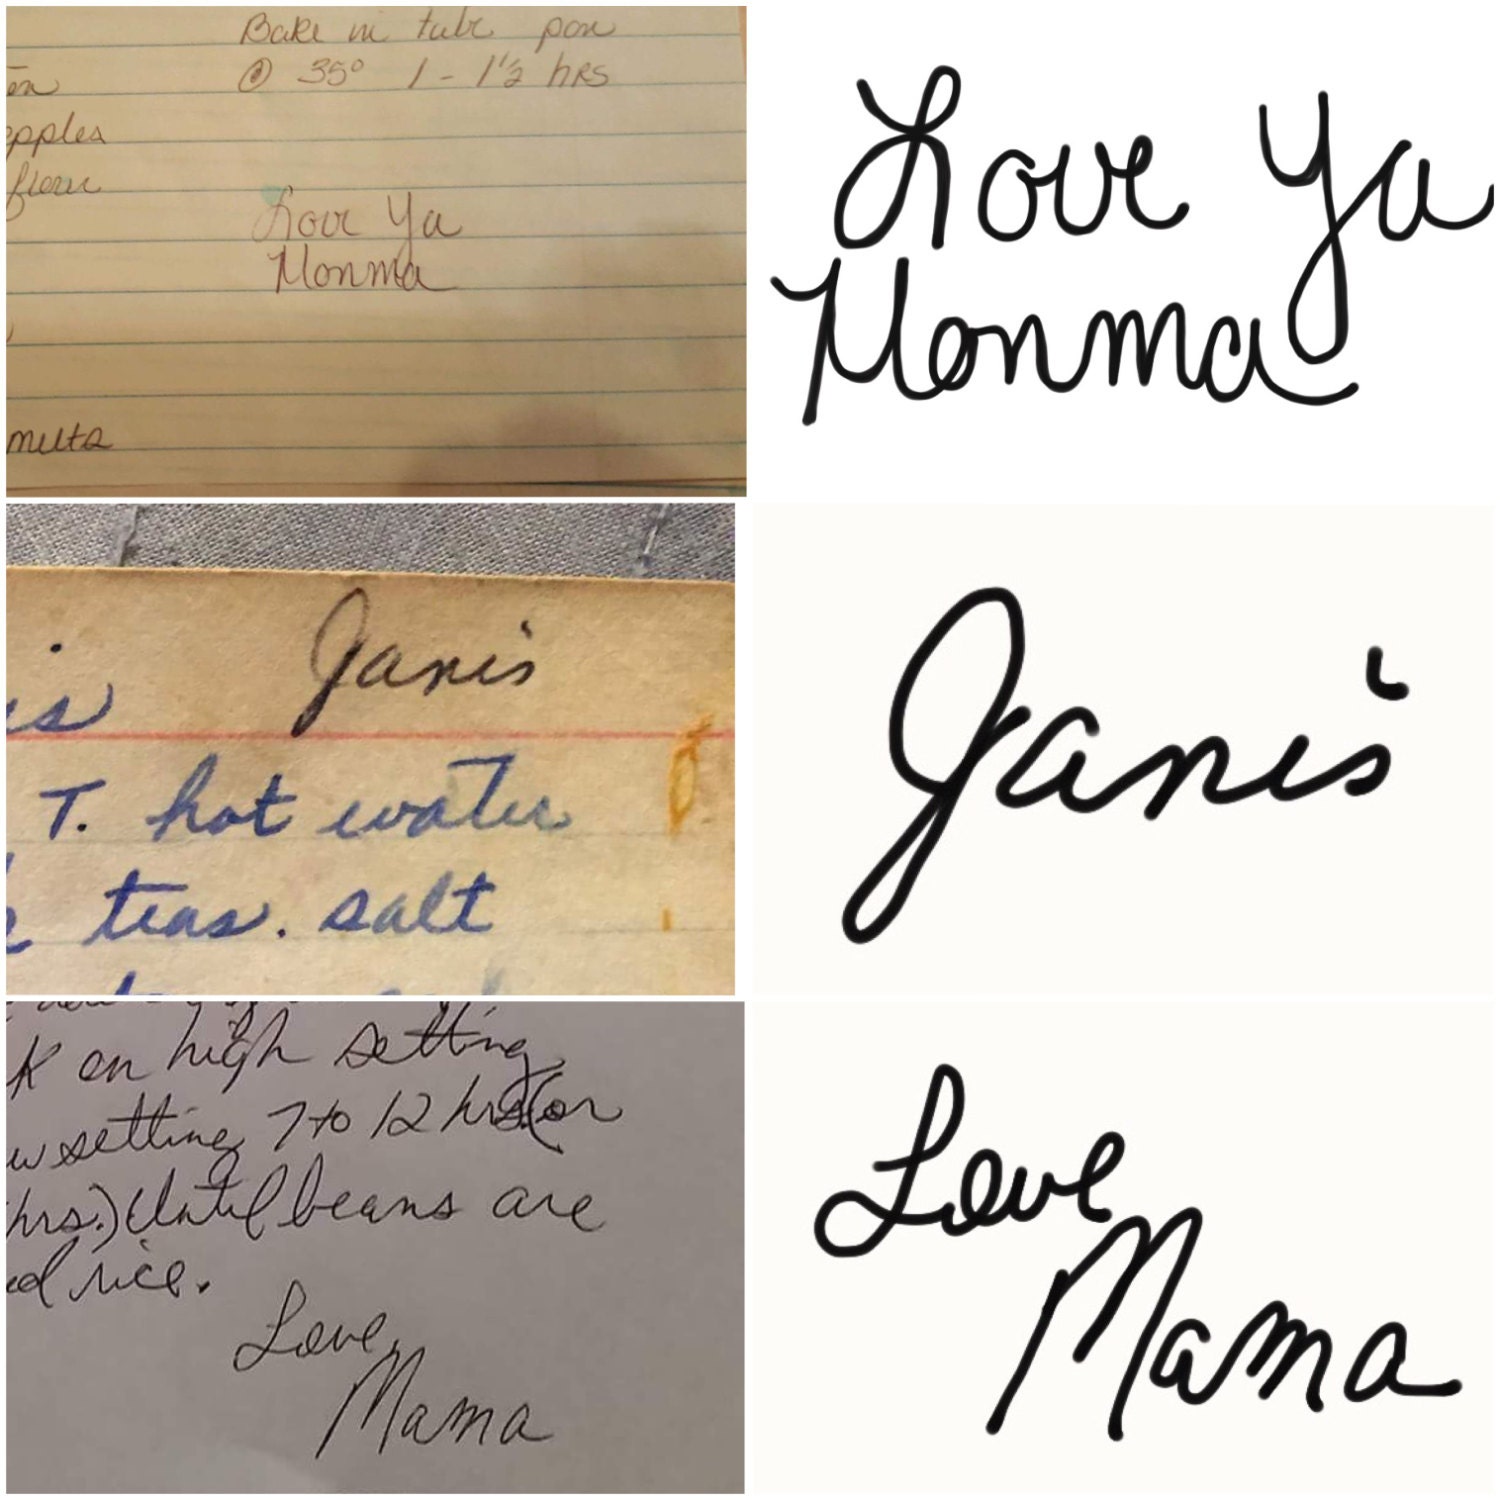 Bake in tube pan
@ 35° 1 - 1½ hrs
apples
flour
Love Ya
Monma
nuts
Love Ya
Monma
Janis
T. hot water
teas. salt
Janis
on high setting
setting 7 to 12 hrs. (or
hrs.) Until beans are
rice.
Love,
Mama
Love
Mama